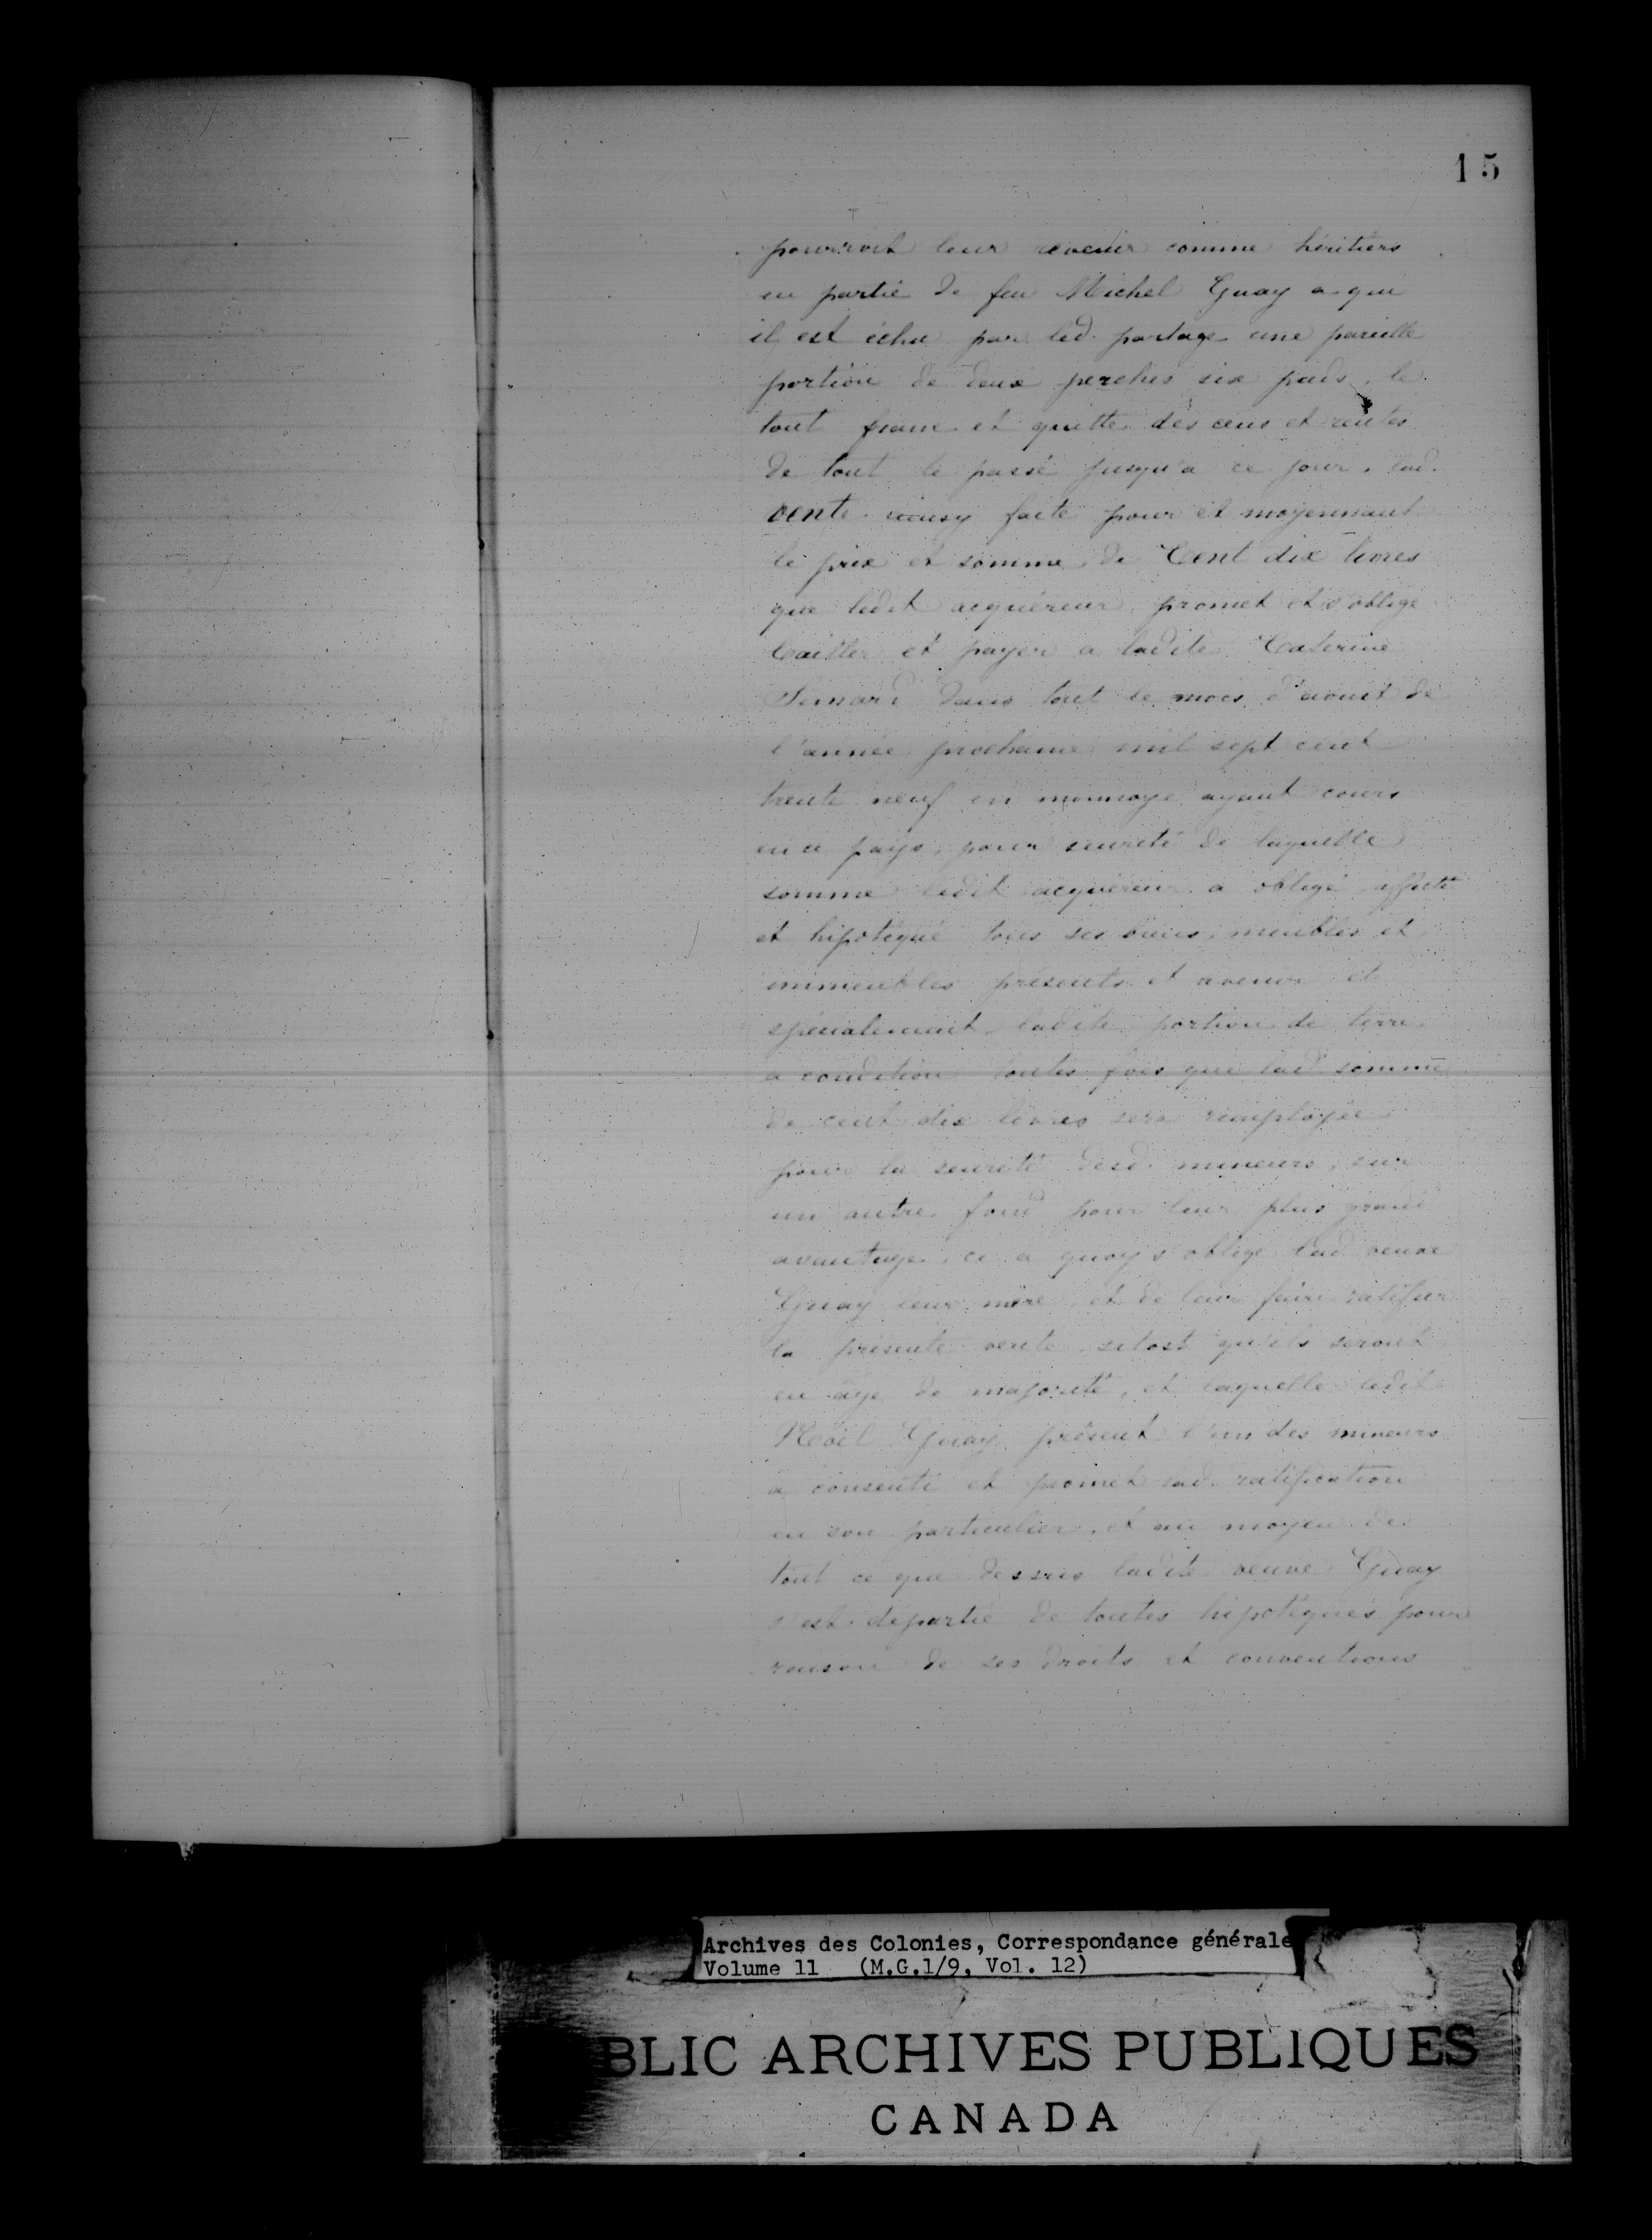 15
pourroit leur revenir comme héritiers
en partie de feu Michel Guay a qui
il est échu par led. partage une pareille
portion de deux perches six pieds, le
tout franc et quitte des cens et rentes
de tout le passé jusqu'a ce jour, lad.
vente ainsy faite pour et moyennant
le prix et somme de Cent dix livres
que ledit acquéreur promet et s'oblige
bailler et payer a ladite Caterine
Simard dans tout le mois d'aoust de
l'année prochaine mil sept cent
trente neuf en monnoye ayant cours
en ce pays, pour seureté de laquelle
somme ledit acquéreur a obligé, affecté
et hipotéqué tous ses biens, meubles et
immeubles présents et avenir et
spécialement ladite portion de terre
a condition toutes fois que lad. somme
de cent dix livres sera remployée
pour la seureté desd. mineurs, sur
un autre fond pour leur plus grand
avantage, ce a quoy s'oblige lad. veuve
Guay leur mère, et de leur faire ratifier
la présente vente, sitost qu'ils seront
en âge de majorité, et laquelle ledit
Noël Guay présent l'un des mineurs
a consenti et promet lad. ratification
en son particulier, et au moyen de
tout ce que dessus ladite veuve Guay
s'est départie de toutes hipotèques pour
raison de ses droits et conventions
Archives des Colonies, Correspondance générale
Volume 11 (M.G.1/9, Vol. 12)
BLIC ARCHIVES PUBLIQUES
CANADA